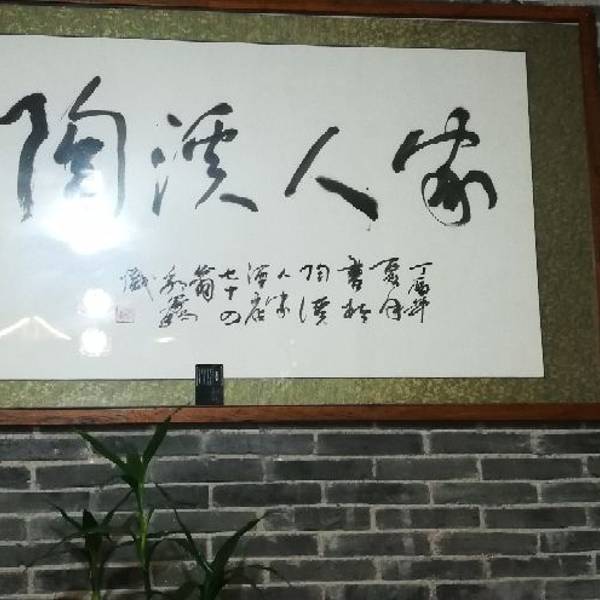 陶溪人家
丁酉年
夏月
書於
陶溪
人家
酒店
七十四
翁
識